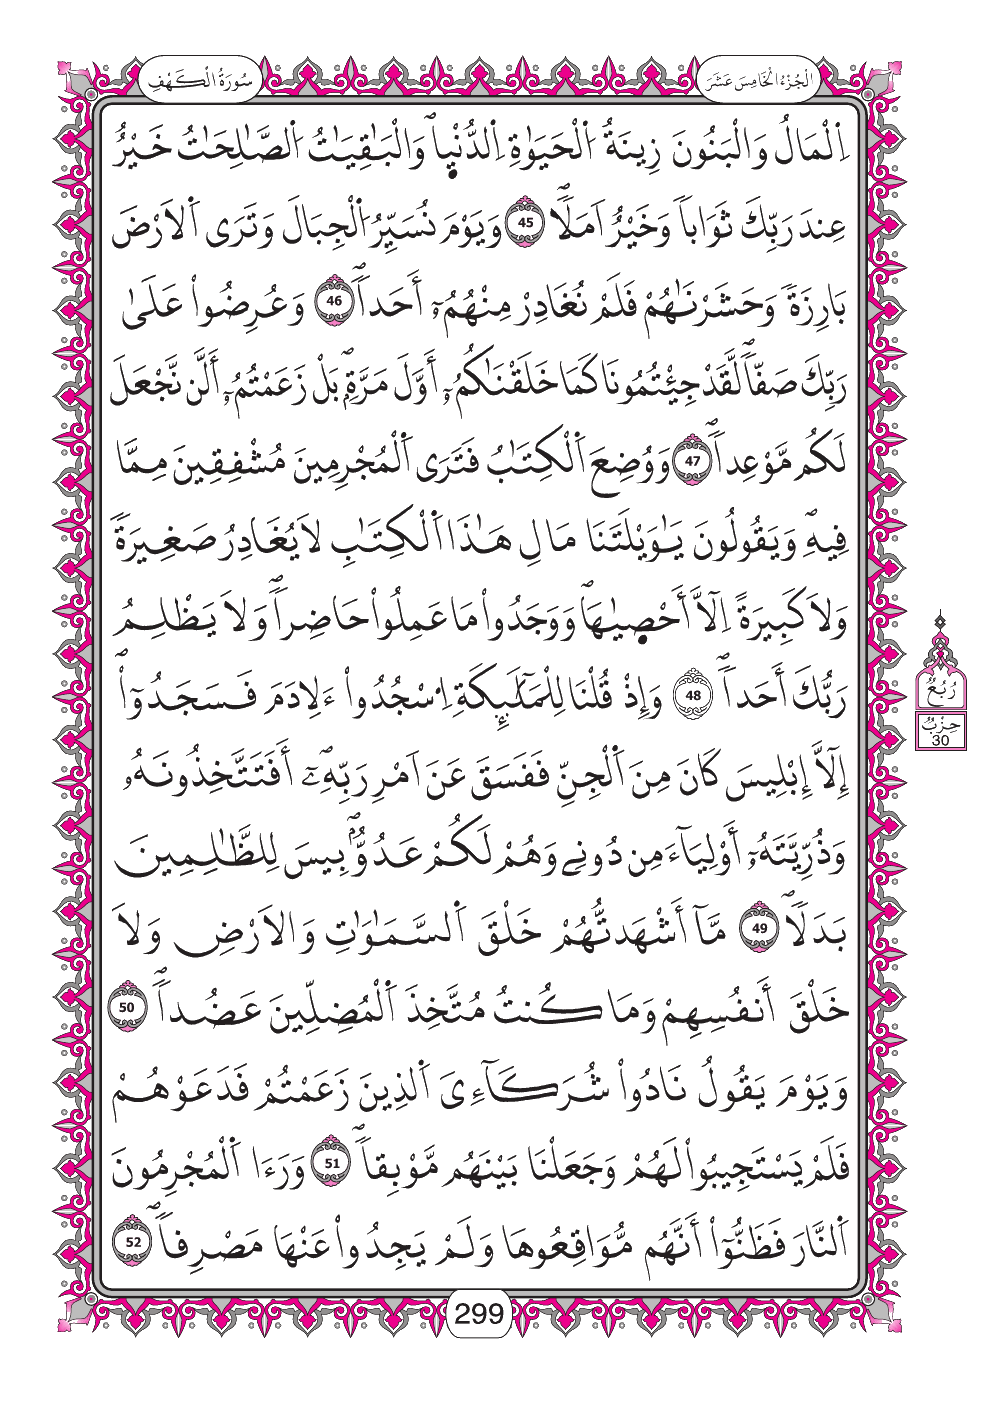 سُورَةُ الْكَهْفِ
الْجُزْءُ الْخَامِسَ عَشَرَ
اِ۬لْمَالُ وَالْبَنُونَ زِينَةُ اُ۬لْحَيَوٰةِ اِ۬لدُّنْي۪اۖ وَالْبَٰقِيَٰتُ اُ۬لصَّٰلِحَٰتُ خَيْرٌ
عِندَ رَبِّكَ ثَوَاباٗ وَخَيْرٌ اَمَلاٗۖ 45 وَيَوْمَ نُسَيِّرُ اُ۬لْجِبَالَ وَتَرَي اَ۬لَارْضَ
بَارِزَةٗ وَحَشَرْنَٰهُمْ فَلَمْ نُغَادِرْ مِنْهُمُۥٓ أَحَداٗۖ 46 وَعُرِضُواْ عَلَىٰ
رَبِّكَ صَفّاٗۖ لَّقَدْ جِئْتُمُونَا كَمَا خَلَقْنَٰكُمُۥٓ أَوَّلَ مَرَّةِۢۖ بَلْ زَعَمْتُمُۥٓ أَلَّن نَّجْعَلَ
لَكُم مَّوْعِداٗۖ 47 وَوُضِعَ اَ۬لْكِتَٰبُ فَتَرَي اَ۬لْمُجْرِمِينَ مُشْفِقِينَ مِمَّا
فِيهِۖ وَيَقُولُونَ يَٰوَيْلَتَنَا مَالِ هَٰذَا اَ۬لْكِتَٰبِ لَا يُغَادِرُ صَغِيرَةٗ
وَلَا كَبِيرَةً اِلَّآ أَحْص۪يٰهَاۖ وَوَجَدُواْ مَا عَمِلُواْ حَاضِراٗۖ وَلَا يَظْلِمُ
رَبُّكَ أَحَداٗۖ 48 وَإِذْ قُلْنَا لِلْمَلَٰٓئِكَةِ اِ۟سْجُدُواْ ءَلِادَمَ فَسَجَدُوٓاْۖ
إِلَّآ إِبْلِيسَ كَانَ مِنَ اَ۬لْجِنِّ فَفَسَقَ عَنَ اَمْرِ رَبِّهِۦٓۖ أَفَتَتَّخِذُونَهُۥ
وَذُرِّيَّتَهُۥٓ أَوْلِيَآءَ مِن دُونِے وَهُمْ لَكُمْ عَدُوُّۢۖ بِيسَ لِلظَّٰلِمِينَ
بَدَلاٗۖ 49 مَّآ أَشْهَدتُّهُمْ خَلْقَ اَ۬لسَّمَٰوَٰتِ وَالَارْضِ وَلَا
خَلْقَ أَنفُسِهِمْ وَمَا كُنتُ مُتَّخِذَ اَ۬لْمُضِلِّينَ عَضُداٗۖ 50
وَيَوْمَ يَقُولُ نَادُواْ شُرَكَآءِيَ اَ۬لذِينَ زَعَمْتُمْ فَدَعَوْهُمْ
فَلَمْ يَسْتَجِيبُواْ لَهُمْ وَجَعَلْنَا بَيْنَهُم مَّوْبِقاٗۖ 51 وَرَءَا اَ۬لْمُجْرِمُونَ
اَ۬لنَّارَ فَظَنُّوٓاْ أَنَّهُم مُّوَاقِعُوهَا وَلَمْ يَجِدُواْ عَنْهَا مَصْرِفاٗۖ 52
رُبُعٌ
حِزْبٌ
30
299